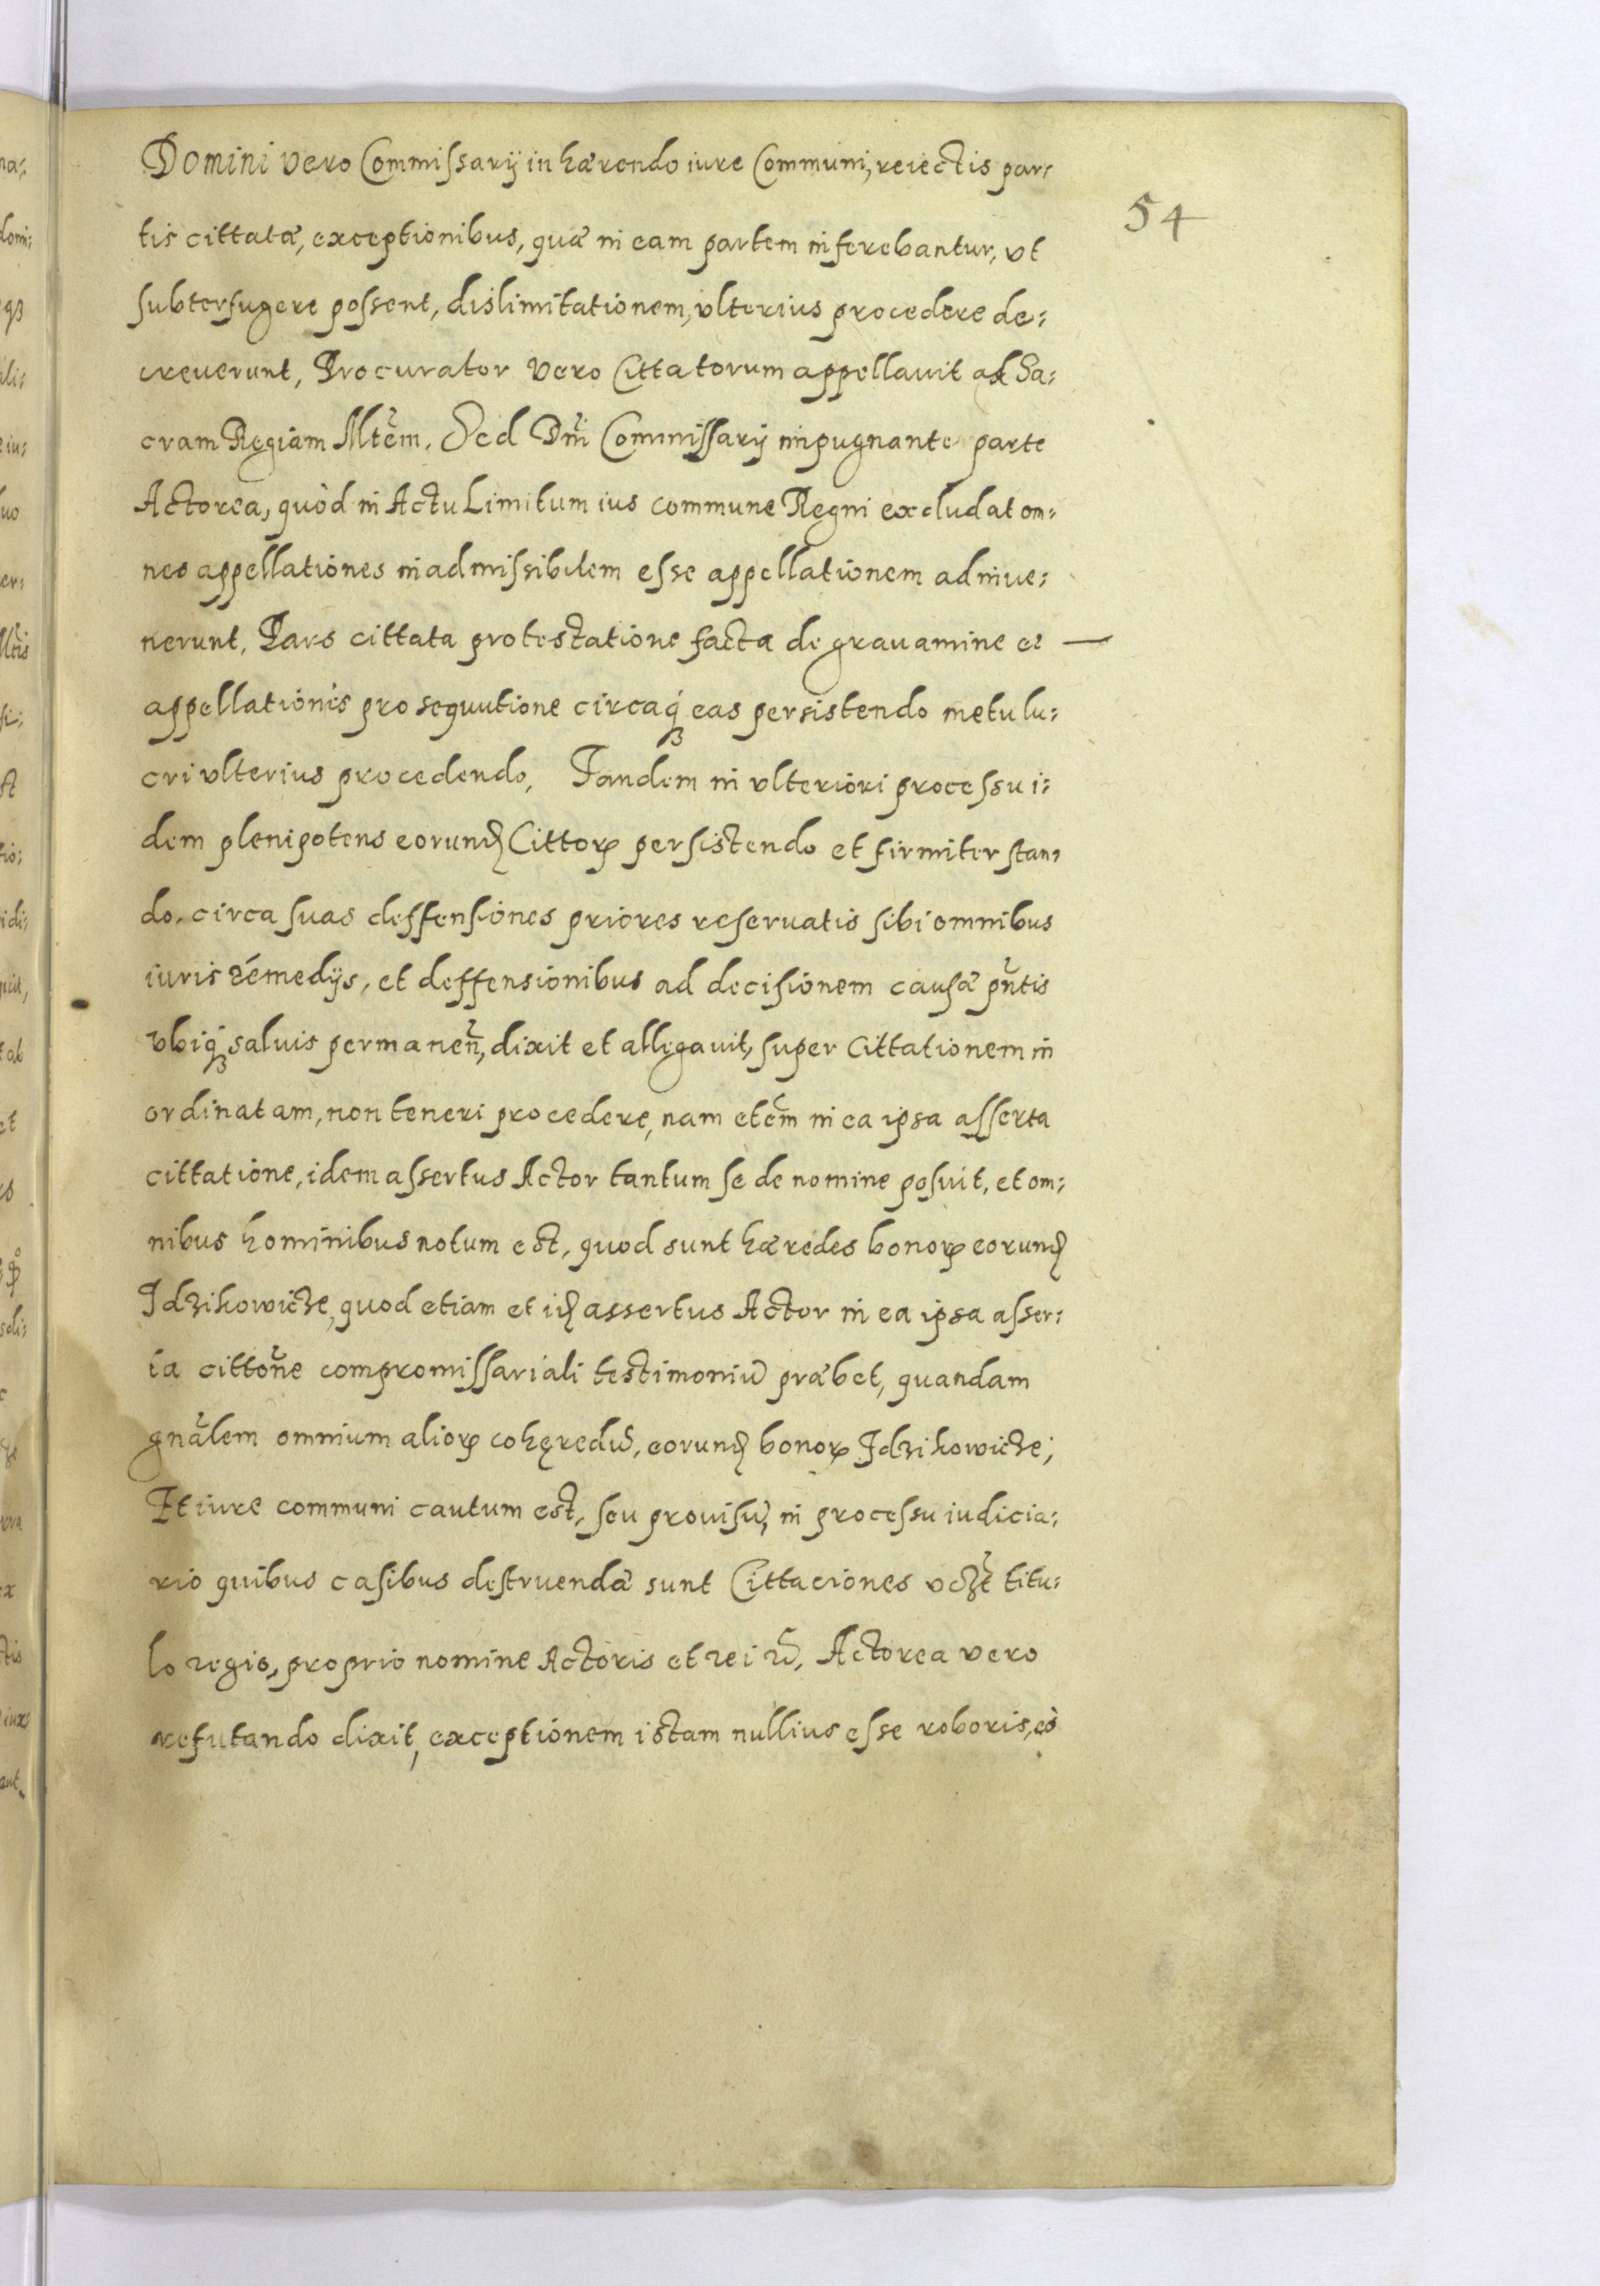 Domini vero Commissarij in hærendo iure Communi, reiectis par:
54
tis cittatæ, exceptionibus, quæ in eam partem inferebantur, vt
subterfugere possent, dislimitationem, vlterius procedere de:
creuerunt, Procurator vero Cittatorum appellauit ad Sa:
cram Regiam Mtem. Sed Dni Commissarij impugnante parte
Actorea, quòd in Actu Limitum ius commune Regni excludat om:
nes appellationes inadmissibilem esse appellationem adinue:
nerunt, Pars cittata protestatione facta de grauamine et —
appellationis prosequutione circaq́ꝫ eas persistendo metu lu:
cri vlterius procedendo, Tandem in vlteriori processu i:
dem plenipotens eorund Cittorꝝ persistendo et firmiter stan:
do, circa suas deffensiones priores reseruatis sibi omnibus
iuris remedijs, et deffensionibus ad decisionem causæ pntis
vbiq́ꝫ saluis permanen, dixit et allegauit, super Cittationem in
ordinatam, non teneri procedere, nam etem in ea ipsa asserta
cittatione, idem assertus Actor tantum se de nomine posuit, et om:
nibus hominibus notum est, quod sunt hæredes bonorꝝ eorund
Idzikowicze, quod etiam et id assertus Actor in ea ipsa asser:
ta cittone compromissariali testimoniũ præbet, quandam
gnalem omnium aliorꝝ cohęredũ, eorund bonorꝝ Idzikowicze;
Et iure communi cautum est, seu prouisũ, in processu iudicia:
rio quibus casibus destruendæ sunt Cittaciones vczt titu:
lo regio, proprio nomine Actoris et rei rũ, Actorea vero
refutando dixit, exceptionem istam nullius esse roboris, eò